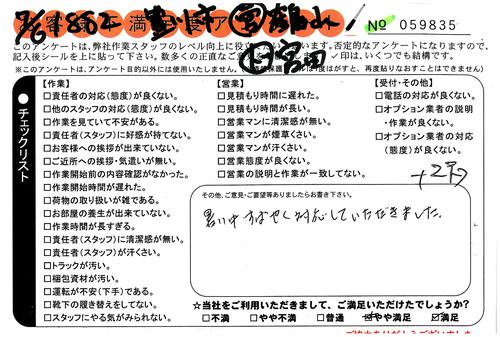 № 059835
このアンケートは、弊社作業スタッフのレベル向上に役立
否定的なアンケートになりますので、
記入後シールを上に貼って下さい。数多くの正直なご
印は、いくつでも結構です。
※このアンケートは、アンケート目的以外には使用いたしません。
度はがすと、再度貼りなおすことはできません)
チェックリスト
【作業】
□責任者の対応(態度)が良くない。
□他のスタッフの対応(態度)が良くない。
□作業を見ていて不安がある。
□責任者(スタッフ)に好感が持てない。
□お客様への挨拶が出来ていない。
□ご近所への挨拶・気遣いが無い。
□作業開始前の内容確認がなかった。
□作業開始時間が遅れた。
□荷物の取り扱いが雑である。
□お部屋の養生が出来ていない。
□作業時間が長すぎる。
□責任者(スタッフ)に清潔感が無い。
□責任者(スタッフ)が汗くさい。
□トラックが汚い。
□梱包資材が汚い。
□運転が不安(下手)である。
□靴下の履き替えをしてない。
□スタッフにやる気がみられない。
【営業】
□見積もり時間に遅れた。
□見積もり時間が長い。
□営業マンに清潔感が無い。
□営業マンが煙草くさい。
□営業マンが汗くさい。
□営業態度が良くない。
□営業の説明と作業が一致してない。
【受付・その他】
□電話の対応が良くない。
□オプション業者の説明
・作業が良くない。
□オプション業者の対応
(態度)が良くない。
その他、ご意見・ご要望等ありましたらお書き下さい。
暑い中 すばやく対応していただきました。
☆当社をご利用いただきまして、ご満足いただけたでしょうか?
□不満 □やや不満 □普通 □やや満足 □満足